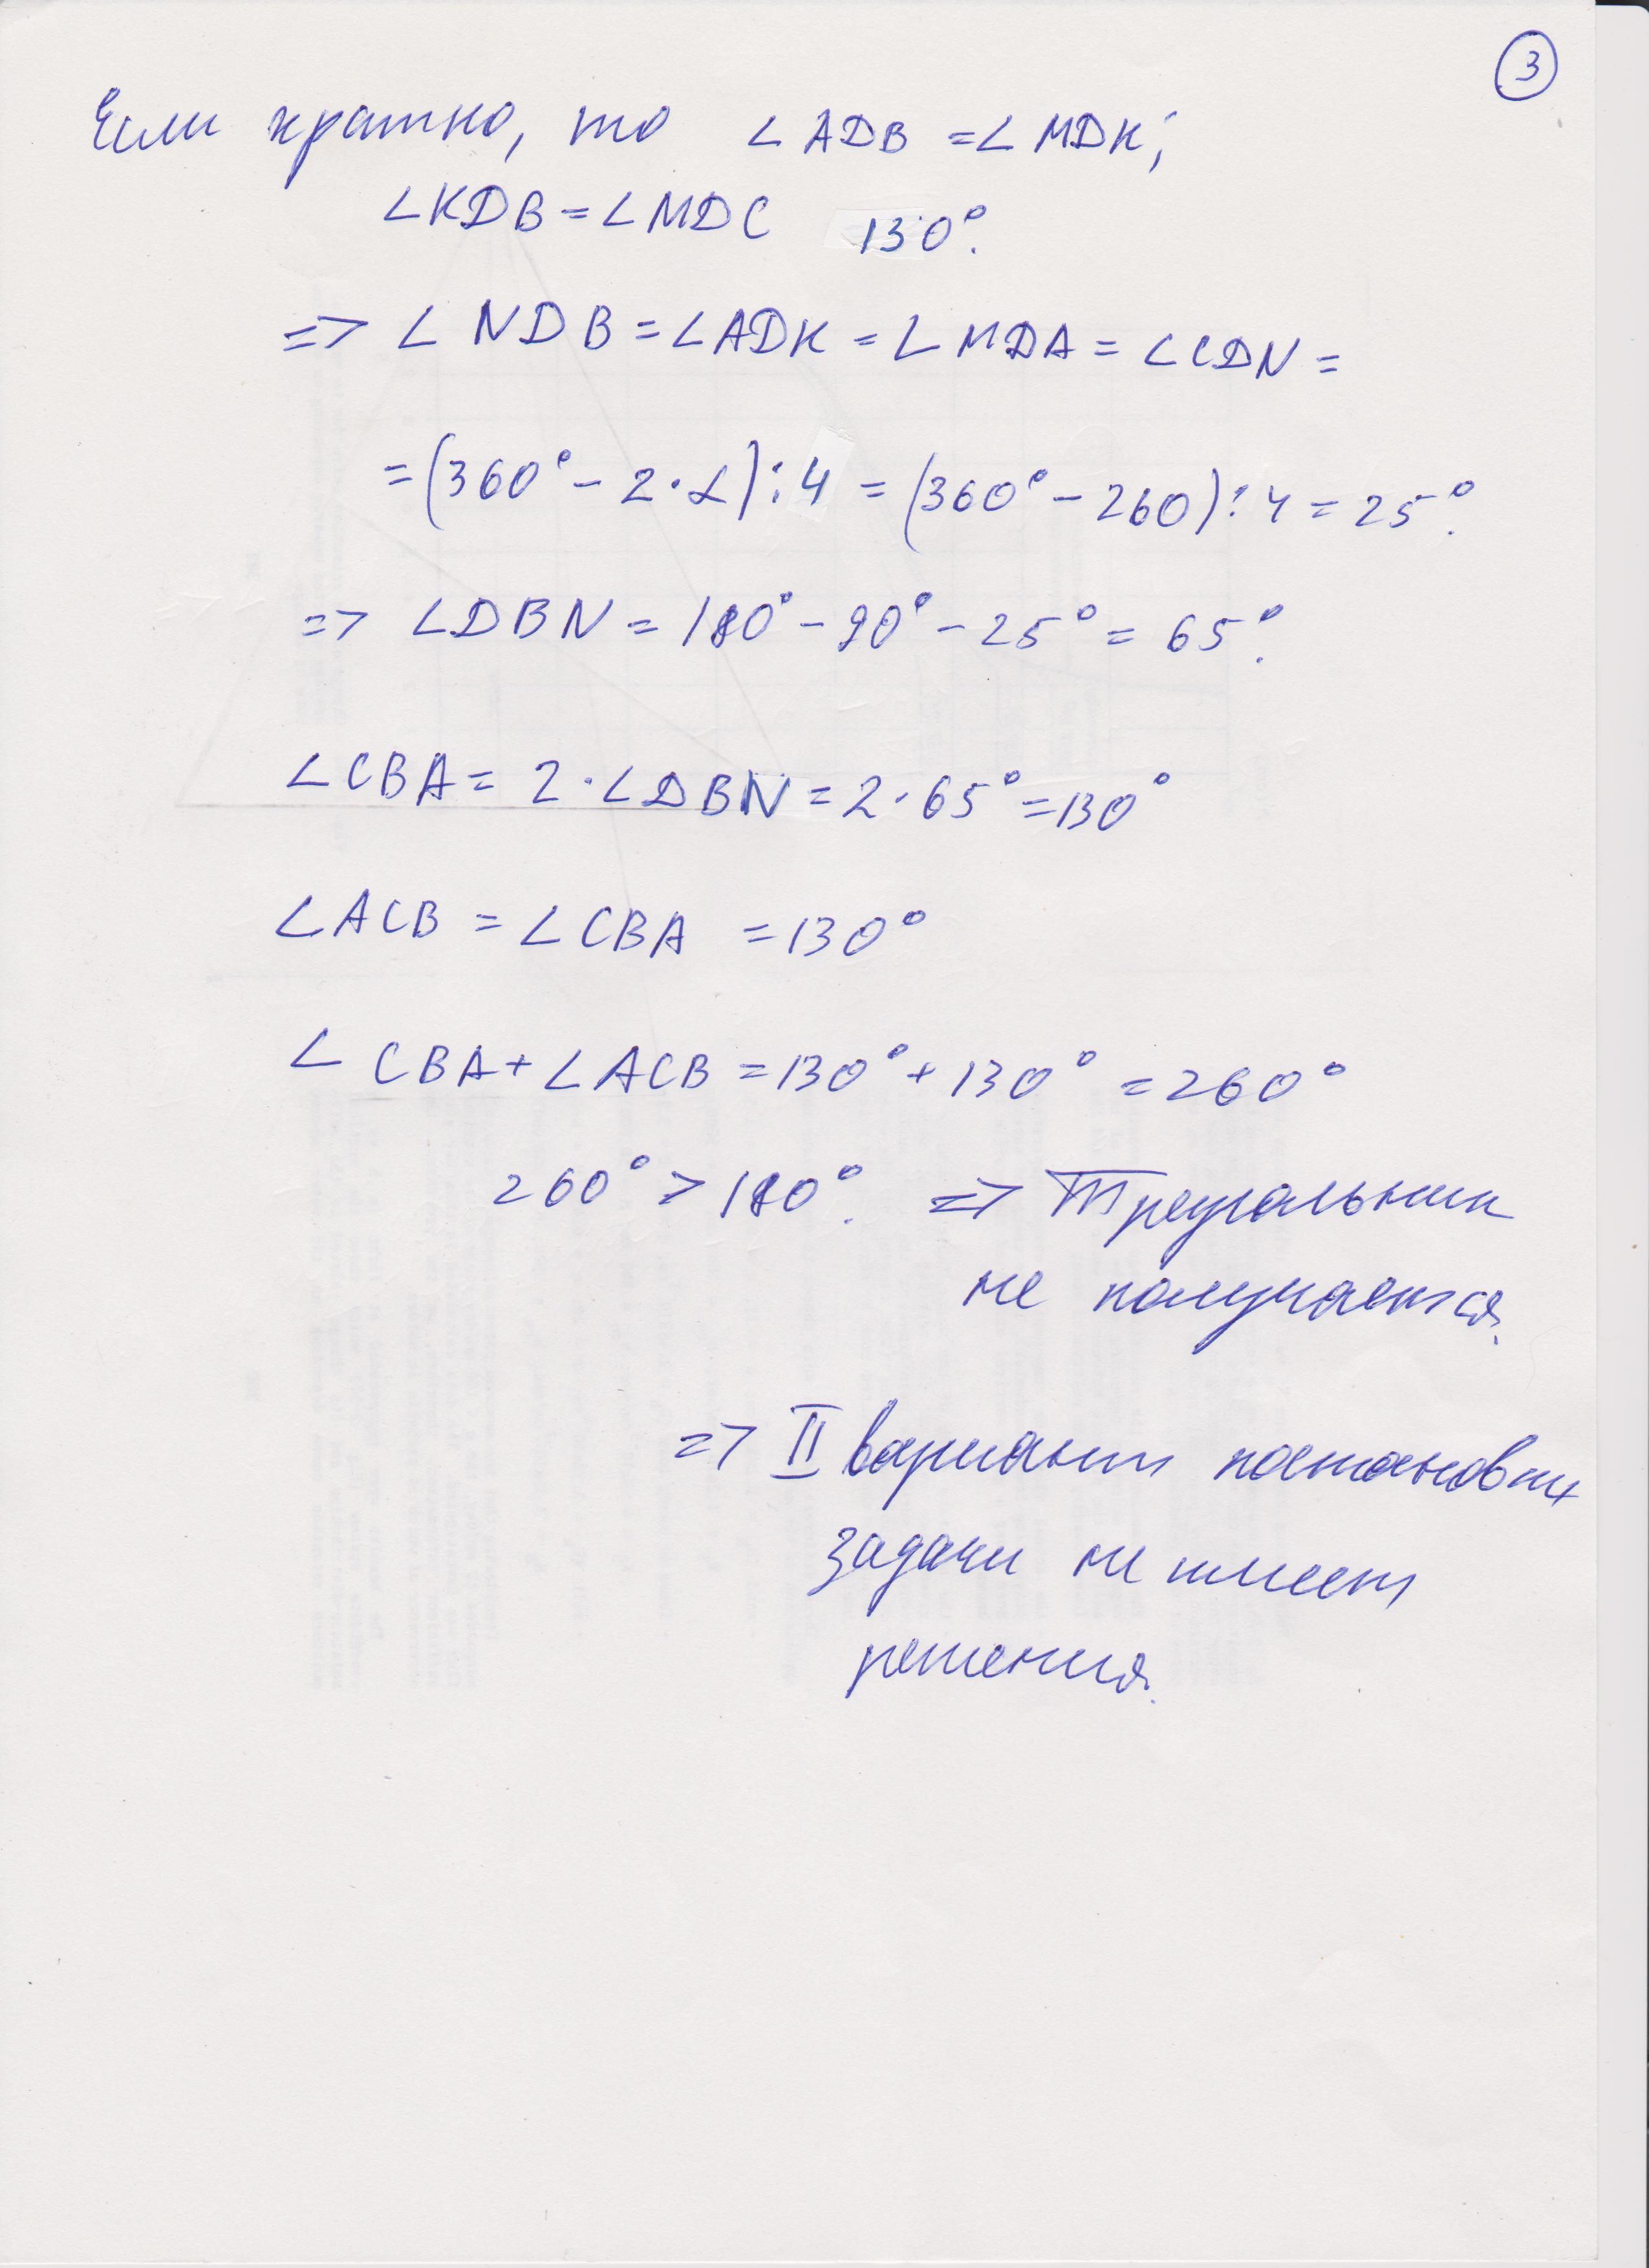 3
Если кратко, то ∠ADB = ∠MDK;
∠KDB = ∠MDC 130°.
=> ∠NDB = ∠ADK = ∠MDA = ∠CDN =
= (360° - 2·α) : 4 = (360° - 260) : 4 = 25°.
=> ∠DBN = 180° - 90° - 25° = 65°.
∠CBA = 2·∠DBN = 2·65° = 130°
∠ACB = ∠CBA = 130°
∠CBA + ∠ACB = 130° + 130° = 260°
260° > 180°. => Треугольник
не получается.
=> II вариант постановки
задачи не имеет
решения.